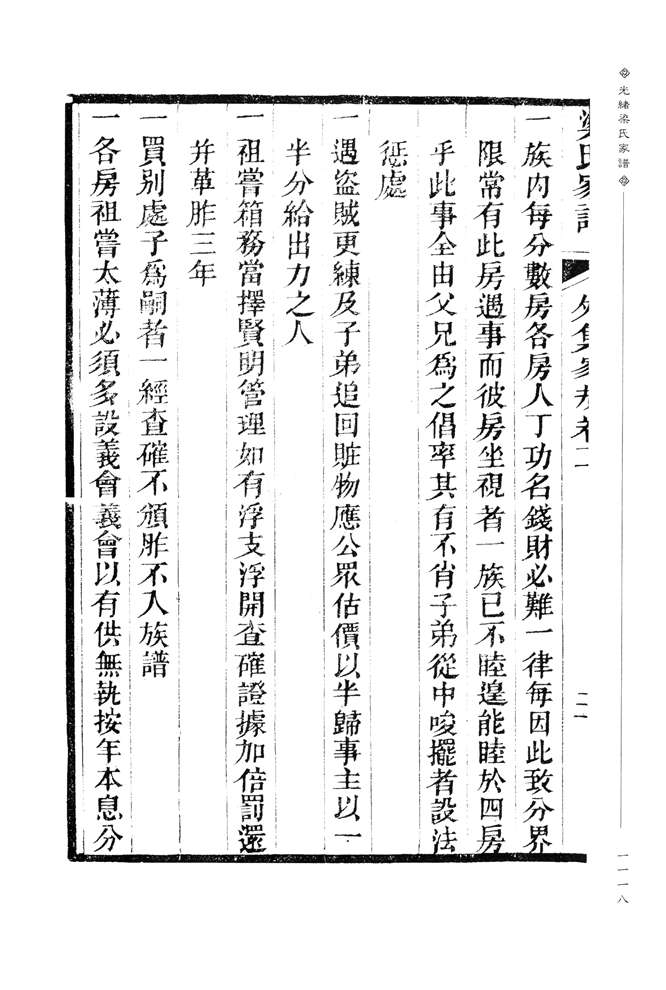 光緒梁氏家譜
一一一八
梁氏家譜 外集家規卷二 二一
一族內每分數房各房人丁功名錢財必難一律每因此致分界
限常有此房遇事而彼房坐視者一族已不睦遑能睦於四房
乎此事全由父兄爲之倡率其有不肖子弟從中唆擺者設法
惩處
一遇盜賊更練及子弟追回賍物應公眾估價以半歸事主以一
半分給出力之人
一祖嘗箱務當擇賢明管理如有浮支浮開查確證據加倍罰還
并革胙三年
一買別處子爲嗣者一經查確不頒胙不入族譜
一各房祖嘗太薄必須多設義會義會以有供無執按年本息分